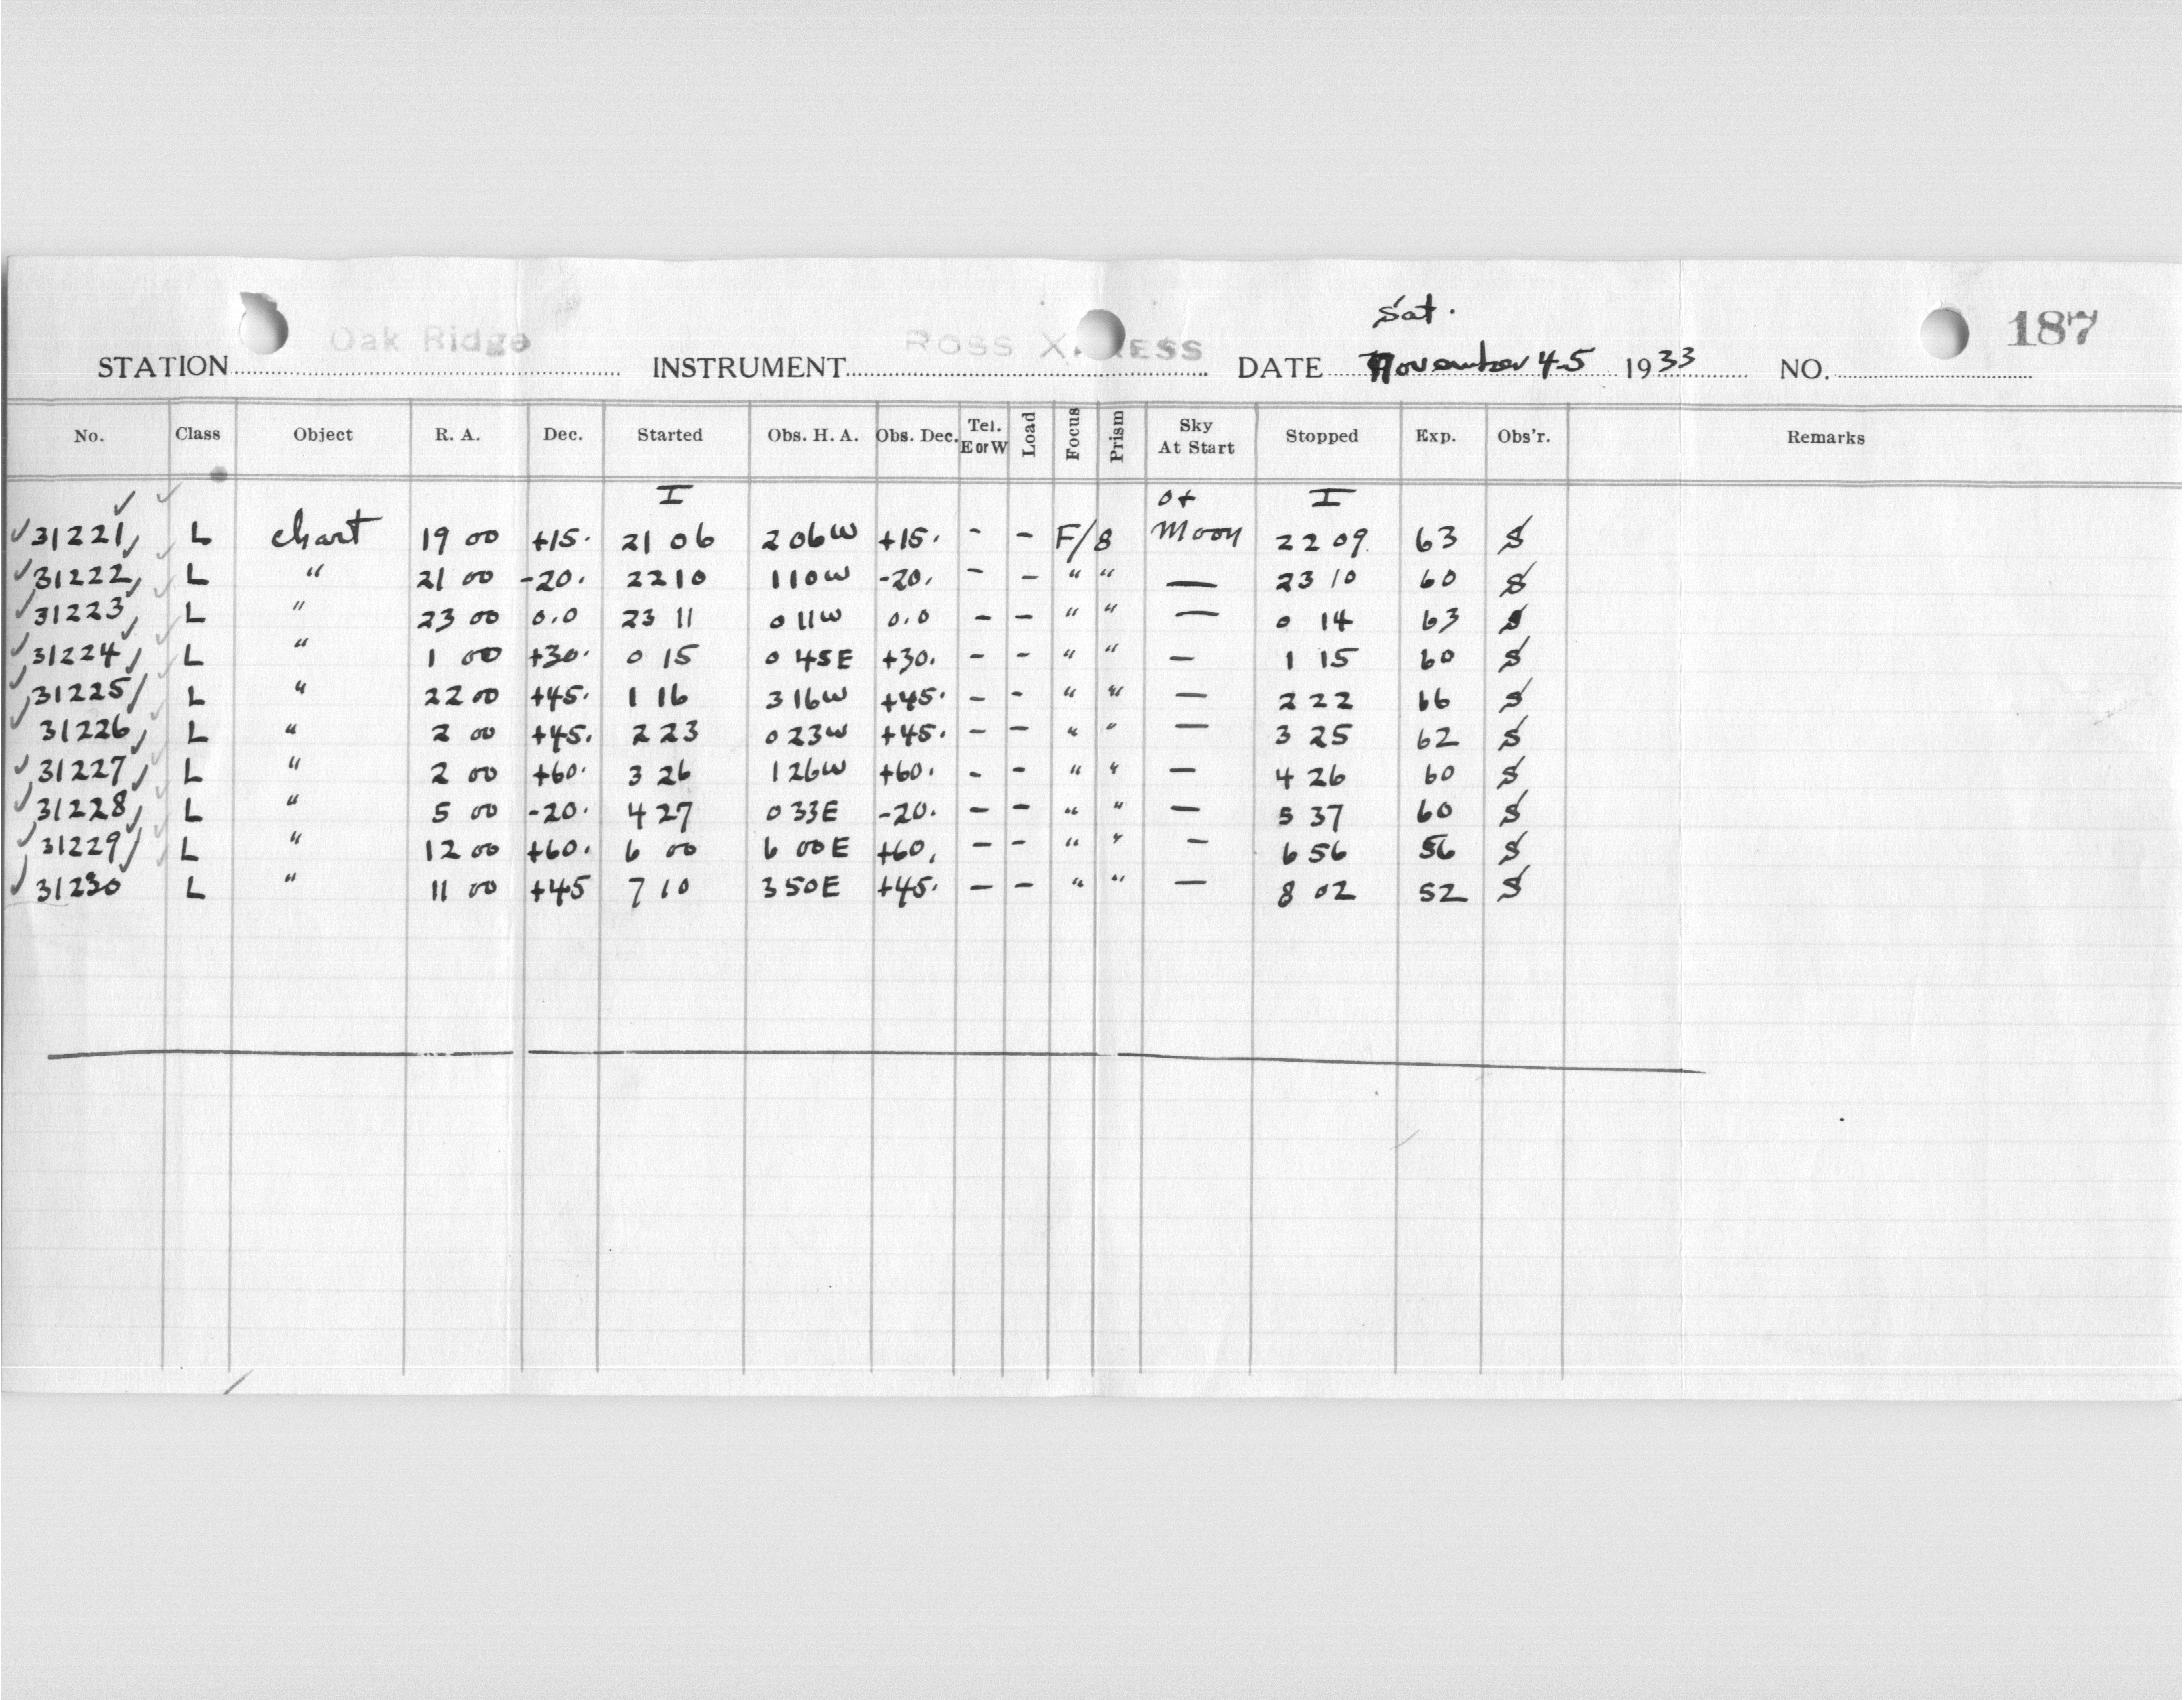 Sat.
Oak Ridge Ross X. RESS 187
STATION INSTRUMENT DATE November 4-5 1933 NO.
No. Class Object R. A. Dec. Started Obs. H. A. Obs. Dec. Tel. E or W Load Focus Prism Sky At Start Stopped Exp. Obs'r. Remarks
I o+ I
31221 L chart 19 00 +15. 21 06 2 06 W +15. - - F/8 Moon 22 09 63 S
31222 L " 21 00 -20. 22 10 1 10 W -20. - - " " — 23 10 60 S
31223 L " 23 00 0.0 23 11 0 11 W 0.0 - - " " — 0 14 63 S
31224 L " 1 00 +30. 0 15 0 45 E +30. - - " " — 1 15 60 S
31225 L " 22 00 +45. 1 16 3 16 W +45. - - " " — 2 22 66 S
31226 L " 2 00 +45. 2 23 0 23 W +45. - - " " — 3 25 62 S
31227 L " 2 00 +60. 3 26 1 26 W +60. - - " " — 4 26 60 S
31228 L " 5 00 -20. 4 27 0 33 E -20. - - " " — 5 37 60 S
31229 L " 12 00 +60. 6 00 6 00 E +60. - - " " — 6 56 56 S
31230 L " 11 00 +45 7 10 3 50 E +45. - - " " — 8 02 52 S